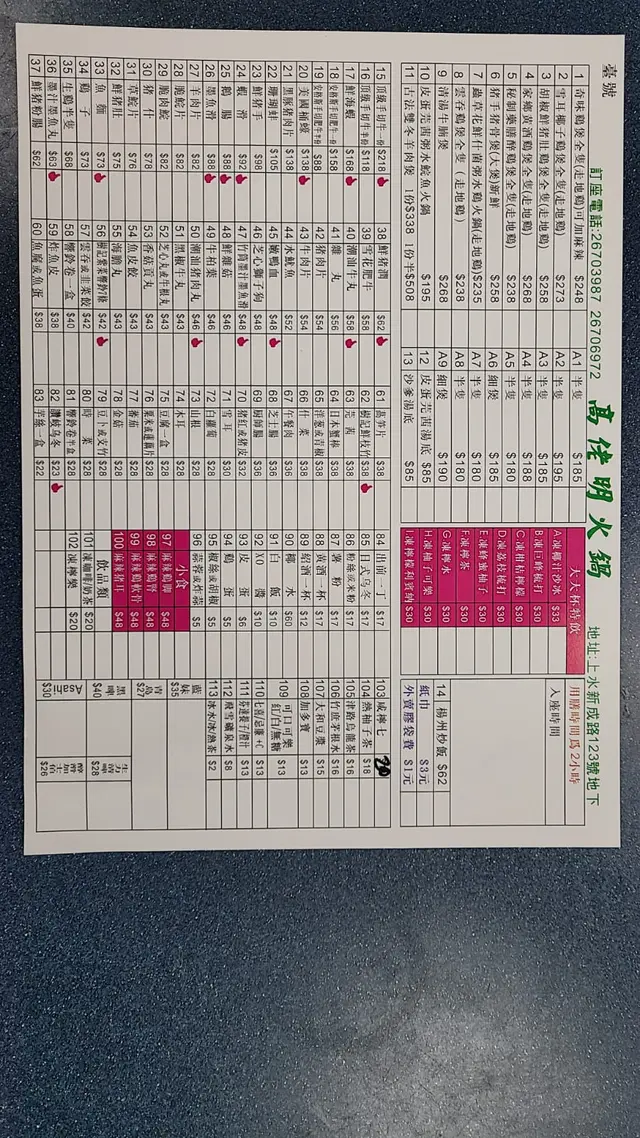 臺號
訂座電話:26703987 26706972
高佬明火鍋
地址:上水新成路123號地下
1 奇味鷄煲全隻(走地鷄)可加麻辣 $248
2 雪耳椰子鷄煲全隻(走地鷄) $273
3 胡椒鮮猪肚鷄煲全隻(走地鷄) $258
4 家鄉黃酒鷄煲全隻(走地鷄) $268
5 秘制藥膳醉鷄煲全隻(走地鷄) $238
6 猪手猪骨煲(大煲)新鮮 $258
7 蟲草花鮮什菌粥水鷄火鍋(走地鷄) $235
8 雲吞鷄煲全隻(走地鷄) $238
9 清湯牛腩煲 $268
10 皮蛋芫茜粥水鯇魚火鍋 $195
11 古法雙冬羊肉煲 1份$338 1份半$508
A1 半隻 $185
A2 半隻 $195
A3 半隻 $185
A4 半隻 $188
A5 半隻 $180
A6 細煲 $185
A7 半隻 $180
A8 半隻 $180
A9 細煲 $190
12 皮蛋芫茜湯底 $85
13 沙爹湯底 $85
大大杯特飲
A.凍椰汁沙冰 $33
B.凍巨峰梳打 $30
C.凍柑桔檸檬 $30
D.凍荔枝梳打 $30
E.凍蜂蜜柚子 $30
F.凍檸茶 $30
G.凍檸水 $30
H.凍柚子可樂 $30
I.凍檸檬利賓納 $30
用膳時間爲2小時
入座時間
14 楊州炒飯 $62
紙巾 $3元
外賣膠袋費 $1元
15 頂級手切牛一份 $218
16 頂級手切牛半份 $118
17 鮮海蝦 $168
18 安格斯手切肥牛一份 $158
19 安格斯手切肥牛半份 $88
20 美國桶蠔 $138
21 黑豚猪肉片 $138
22 珊瑚蚌 $105
23 鮮猪手 $98
24 蝦滑 $92
25 鵝腸 $88
26 墨魚滑 $88
27 羊肉片 $82
28 脆鯇片 $82
29 脆肉鯇 $82
30 猪什 $78
31 草鯇片 $76
32 鮮猪肚 $75
33 魚茸 $73
34 鷄子 $73
35 生鷄半隻 $68
36 墨汁墨魚丸 $63
37 鮮猪粉腸 $62
38 鮮猪潤 $62
39 雪花肥牛 $58
40 潮汕牛丸 $58
41 雜丸 $56
42 猪肉片 $54
43 牛肉片 $54
44 水魷魚 $52
45 嫩鴨血 $48
46 芝心獅子狗 $48
47 竹筒墨汁墨魚滑 $48
48 鮮雜菇 $48
49 牛柏葉 $46
50 潮汕猪肉丸 $46
51 黑椒牛丸 $43
52 芝心丸或牛根丸 $43
53 香菇貢丸 $43
54 魚皮餃 $43
55 海膽丸 $43
56 樹記紫菜響鈴條 $42
57 雲吞或韭菜餃 $42
58 響鈴卷一盒 $40
59 炸魚皮 $38
60 魚腐或魚蛋 $38
61 萵笋片 $38
62 樹記鮮枝竹 $38
63 芫茜 $38
64 日本蟹棒 $38
65 洋葱或凉瓜 $38
66 什菜 $38
67 午餐肉 $36
68 芝士腸 $36
69 厨師腸 $36
70 猪紅或猪皮 $32
71 雪耳 $30
72 白蘿蔔 $28
73 山根 $28
74 木耳 $28
75 豆腐一盒 $28
76 粟米或蓮藕片 $28
77 番茄 $28
78 金菇 $28
79 豆卜或支竹 $28
80 時菜 $28
81 響鈴卷半盒 $28
82 讚岐烏冬 $23
83 芋絲一盒 $22
84 出前一丁 $17
85 日式烏冬 $17
86 粉絲或米粉 $17
87 薯粉 $17
88 黃酒一杯 $17
89 紹酒一杯 $12
90 椰水 $60
91 白飯 $10
92 XO醬 $10
93 皮蛋 $6
94 鷄蛋 $5
95 椒絲或胡椒 $5
96 蒜蓉或炸蒜 $5
小食
97 麻辣鷄脚 $48
98 麻辣鷄腎 $48
99 麻辣鷄軟骨 $48
100 麻辣猪耳 $48
飲品類
101 凍咖啡奶茶 $20
102 凍檸樂 $20
103 咸檸七 20
104 熱柚子茶 $18
105 津路烏龍茶 $16
106 竹蔗茅根水 $16
107 大和豆漿 $15
108 加多寶 $13
109 可口可樂 紅/白/無糖 $13
110 七喜/忌廉/C $13
111 $13
112 飛雪礦泉水 $8
113 冰水/冰/熱茶 $2
藍妹 $35
青島 $27
黑啤 $40
Asahi $30
生力清啤 $28
生力啤 $26